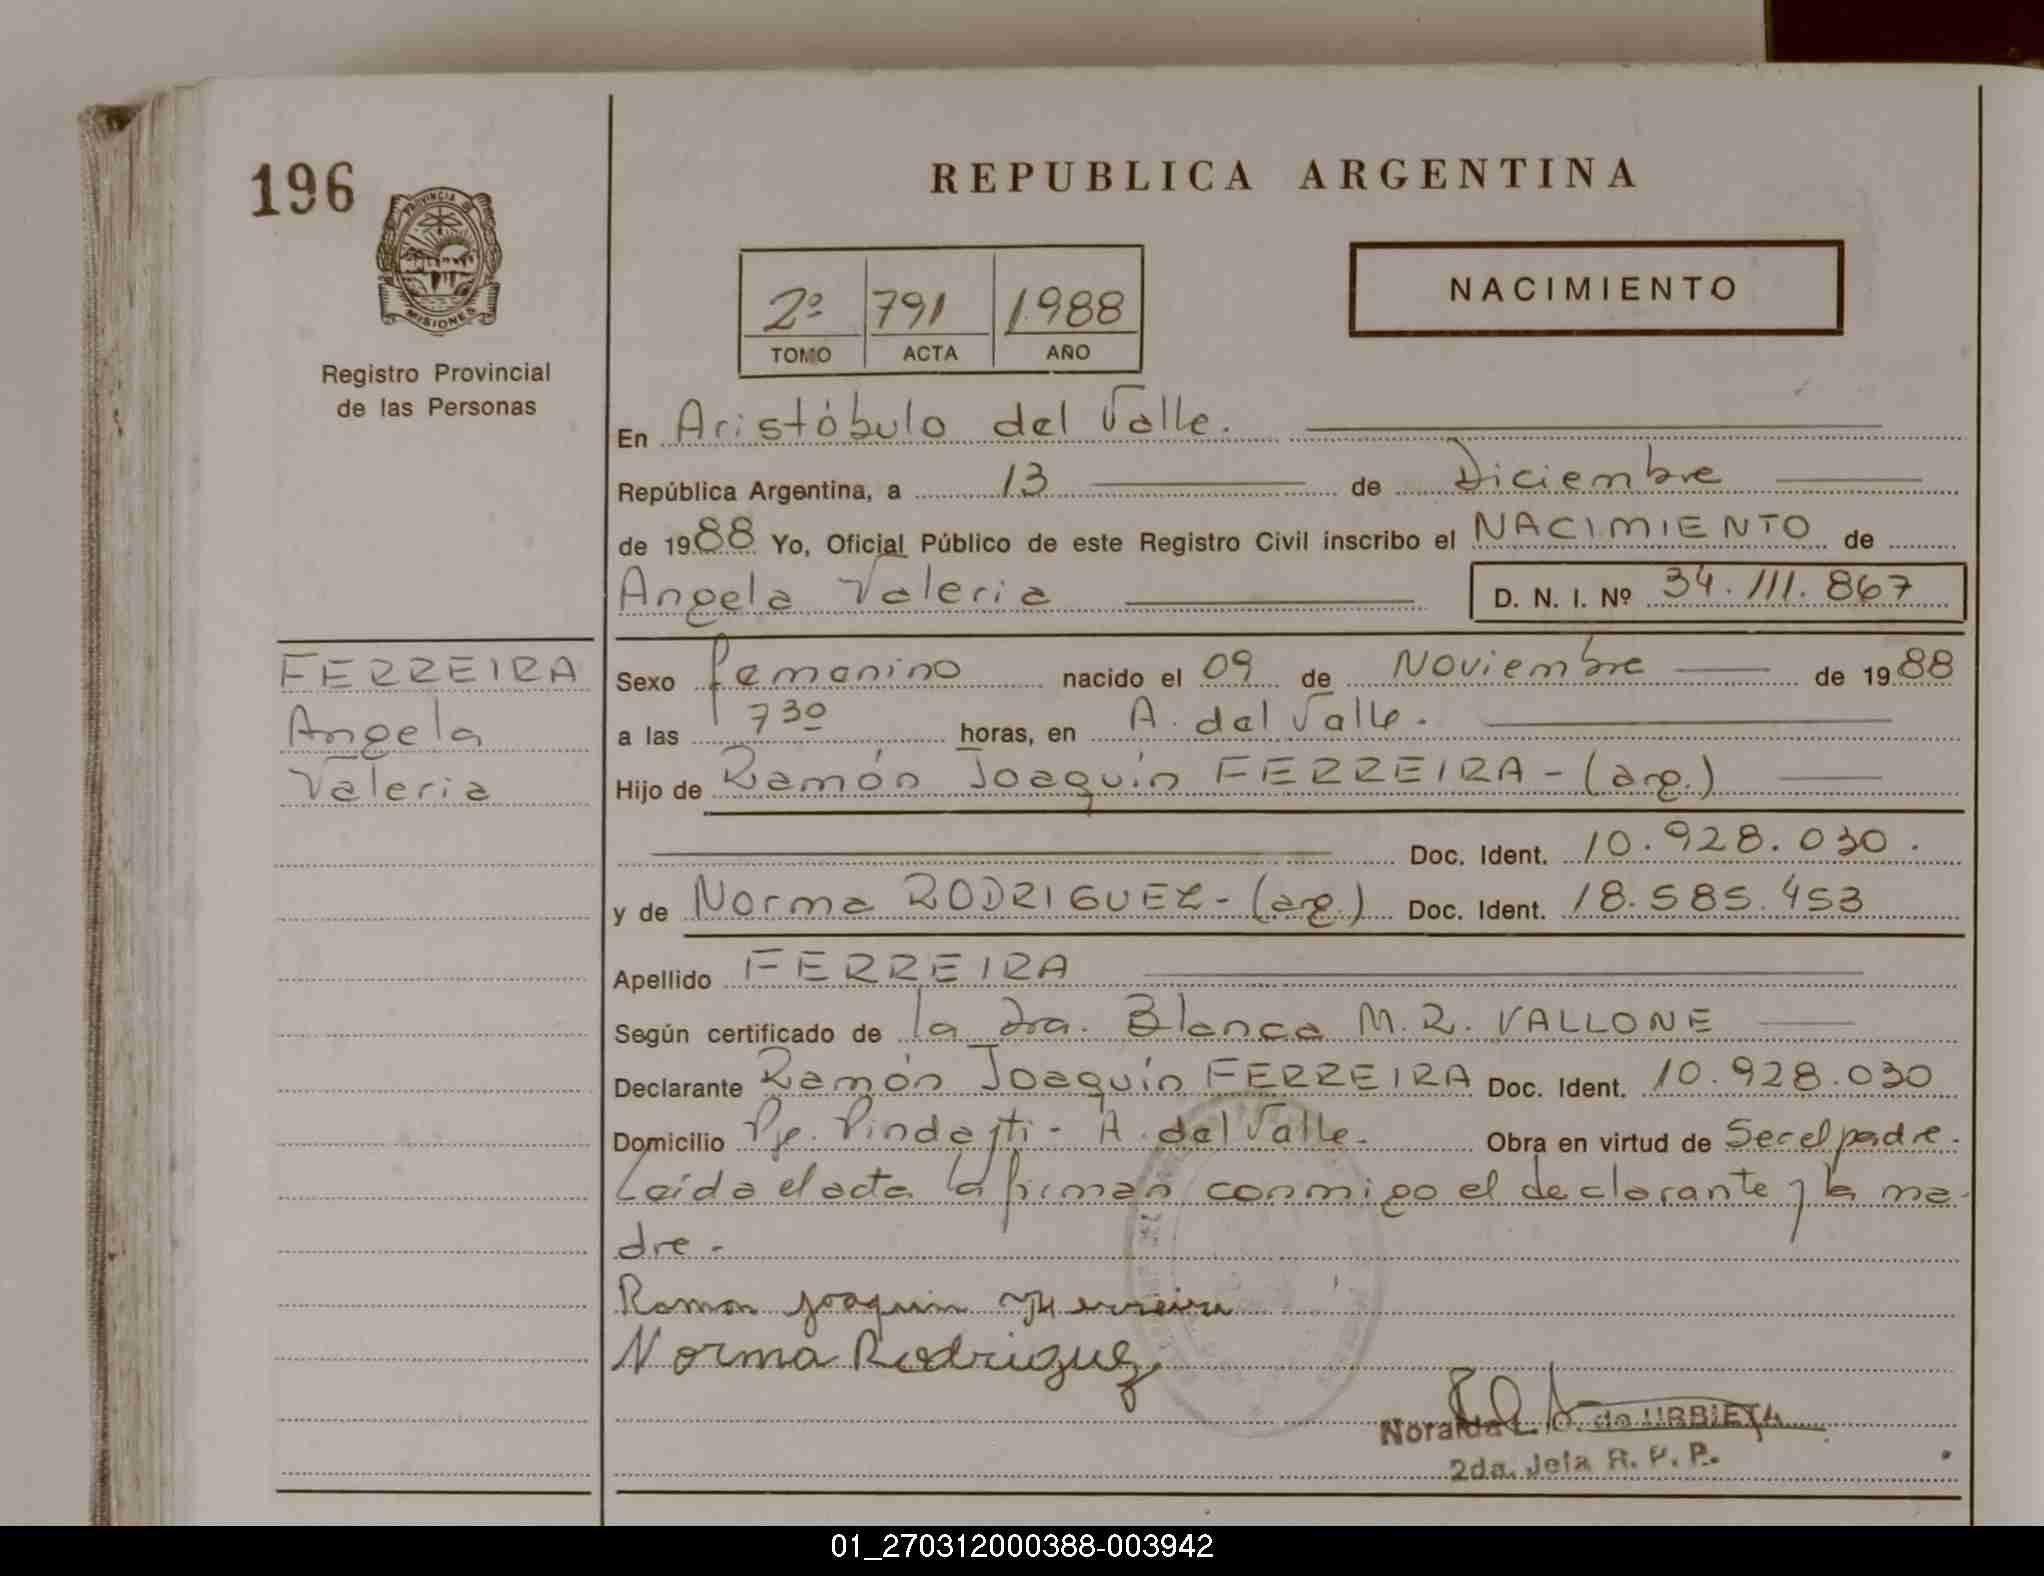 196
REPUBLICA ARGENTINA
PROVINCIA DE
MISIONES
Registro Provincial
de las Personas
2º 791 1988
TOMO ACTA AÑO
NACIMIENTO
En Aristóbulo del Valle.
República Argentina, a 13 de Diciembre
de 1988 Yo, Oficial Público de este Registro Civil inscribo el NACIMIENTO de
Angela Valeria D. N. I. Nº 34.111.867
FERREIRA
Angela
Valeria
Sexo femenino nacido el 09 de Noviembre de 1988
a las 7 30 horas, en A. del Valle.
Hijo de Ramón Joaquín FERREIRA - (arg.)
Doc. Ident. 10.928.030.
y de Norma RODRIGUEZ - (arg.) Doc. Ident. 18.585.453
Apellido FERREIRA
Según certificado de la Dra. Blanca M. R. VALLONE
Declarante Ramón Joaquín FERREIRA Doc. Ident. 10.928.030
Domicilio Pje. Pindayti - A. del Valle. Obra en virtud de Ser el padre.
Leída el acta la firman conmigo el declarante y la ma-
dre.
Ramon Joaquin Ferreira
Norma Rodriguez
de URBIETA
2da. Jefa R. P. P.
01_270312000388-003942